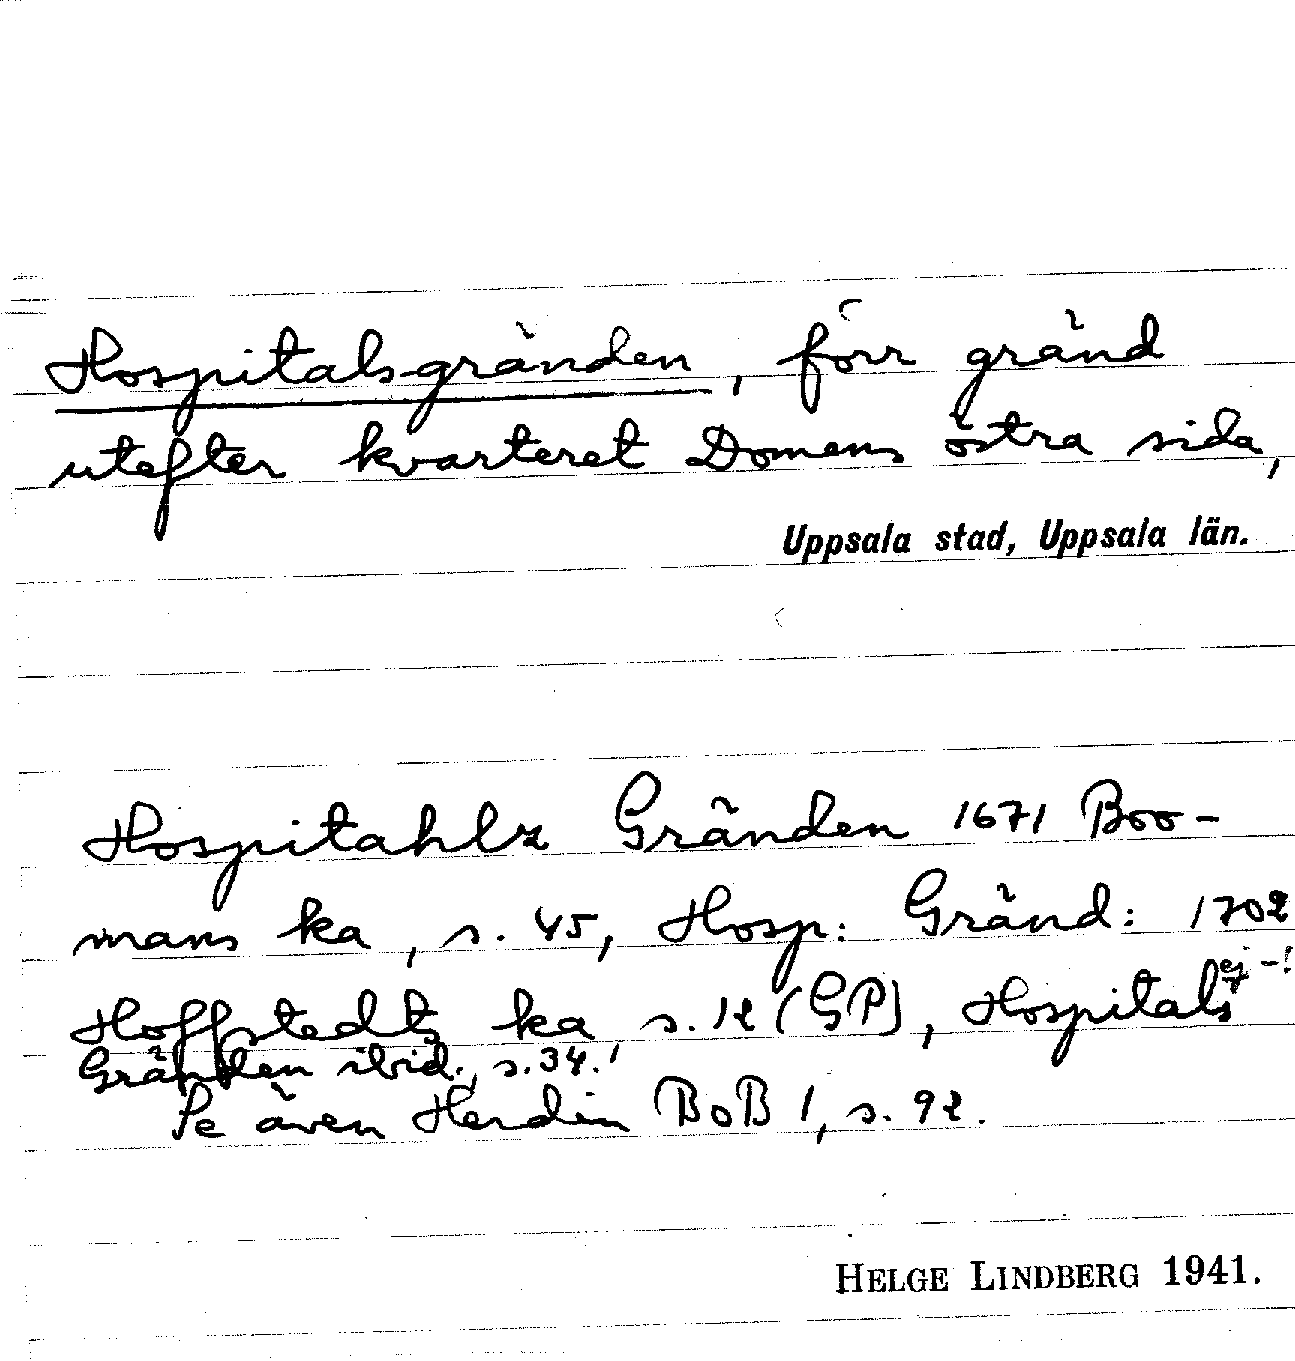 Hospitalsgränden, förr gränd
utefter kvarteret Domens östra sida,
Uppsala stad, Uppsala län.
Hospitahlz Gränden 1671 Boo-
mans ka, s. 45, Hosp: Gränd: 1702
Hoffstedts ka s. 12 (GP), Hospitals ej -!
Gränden ibid., s. 34.
Se även Herdin BoB 1, s. 92.
HELGE LINDBERG 1941.